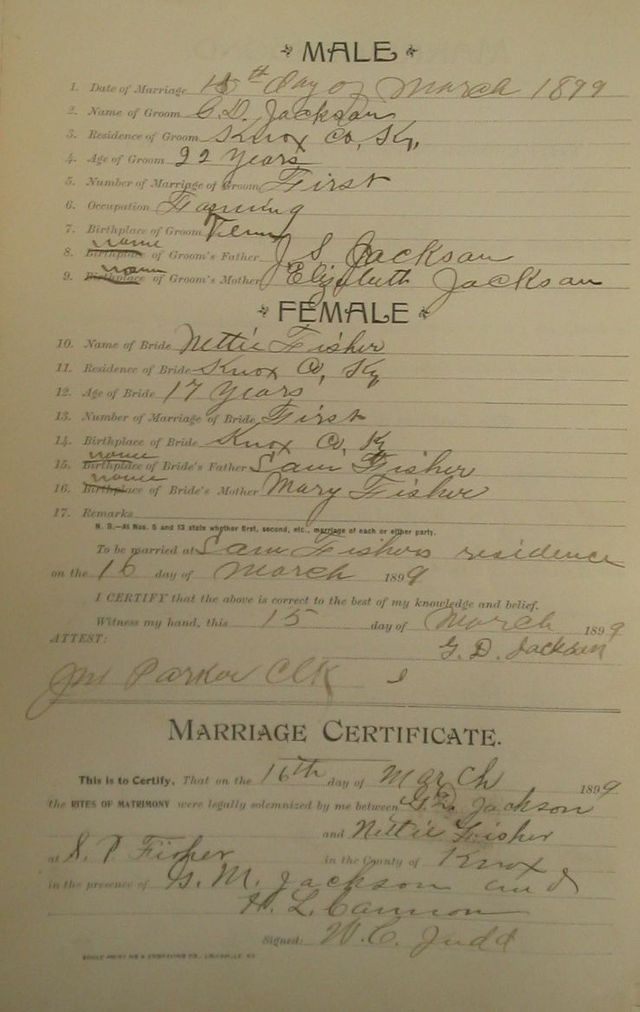 MALE
1. Date of Marriage 15th day of March 1899
2. Name of Groom G. D. Jackson
3. Residence of Groom Knox Co, Ky,
4. Age of Groom 22 years
5. Number of Marriage of Groom First
6. Occupation Farming
7. Birthplace of Groom Tenn
name
8. Birthplace of Groom's Father J S Jackson
name
9. Birthplace of Groom's Mother Elizabeth Jackson
FEMALE
10. Name of Bride Nettie Fisher
11. Residence of Bride Knox Co, Ky
12. Age of Bride 17 years
13. Number of Marriage of Bride First
14. Birthplace of Bride Knox Co, K
name
15. Birthplace of Bride's Father Sam Fisher
name
16. Birthplace of Bride's Mother Mary Fisher
17. Remarks
N. B.—At Nos. 5 and 13 state whether first, second, etc., marriage of each or either party.
To be married at Sam Fishers residence
on the 16 day of March 1899
I CERTIFY that the above is correct to the best of my knowledge and belief.
Witness my hand, this 15 day of March 1899
ATTEST: G. D. Jackson
JM Parker Clk
MARRIAGE CERTIFICATE.
This is to Certify, That on the 16th day of March 1899
the RITES OF MATRIMONY were legally solemnized by me between G. D. Jackson
and Nettie Fisher
at S. P. Fisher in the County of Knox
in the presence of G. M. Jackson and
H. L. Cannon
Signed: W. C. Judd